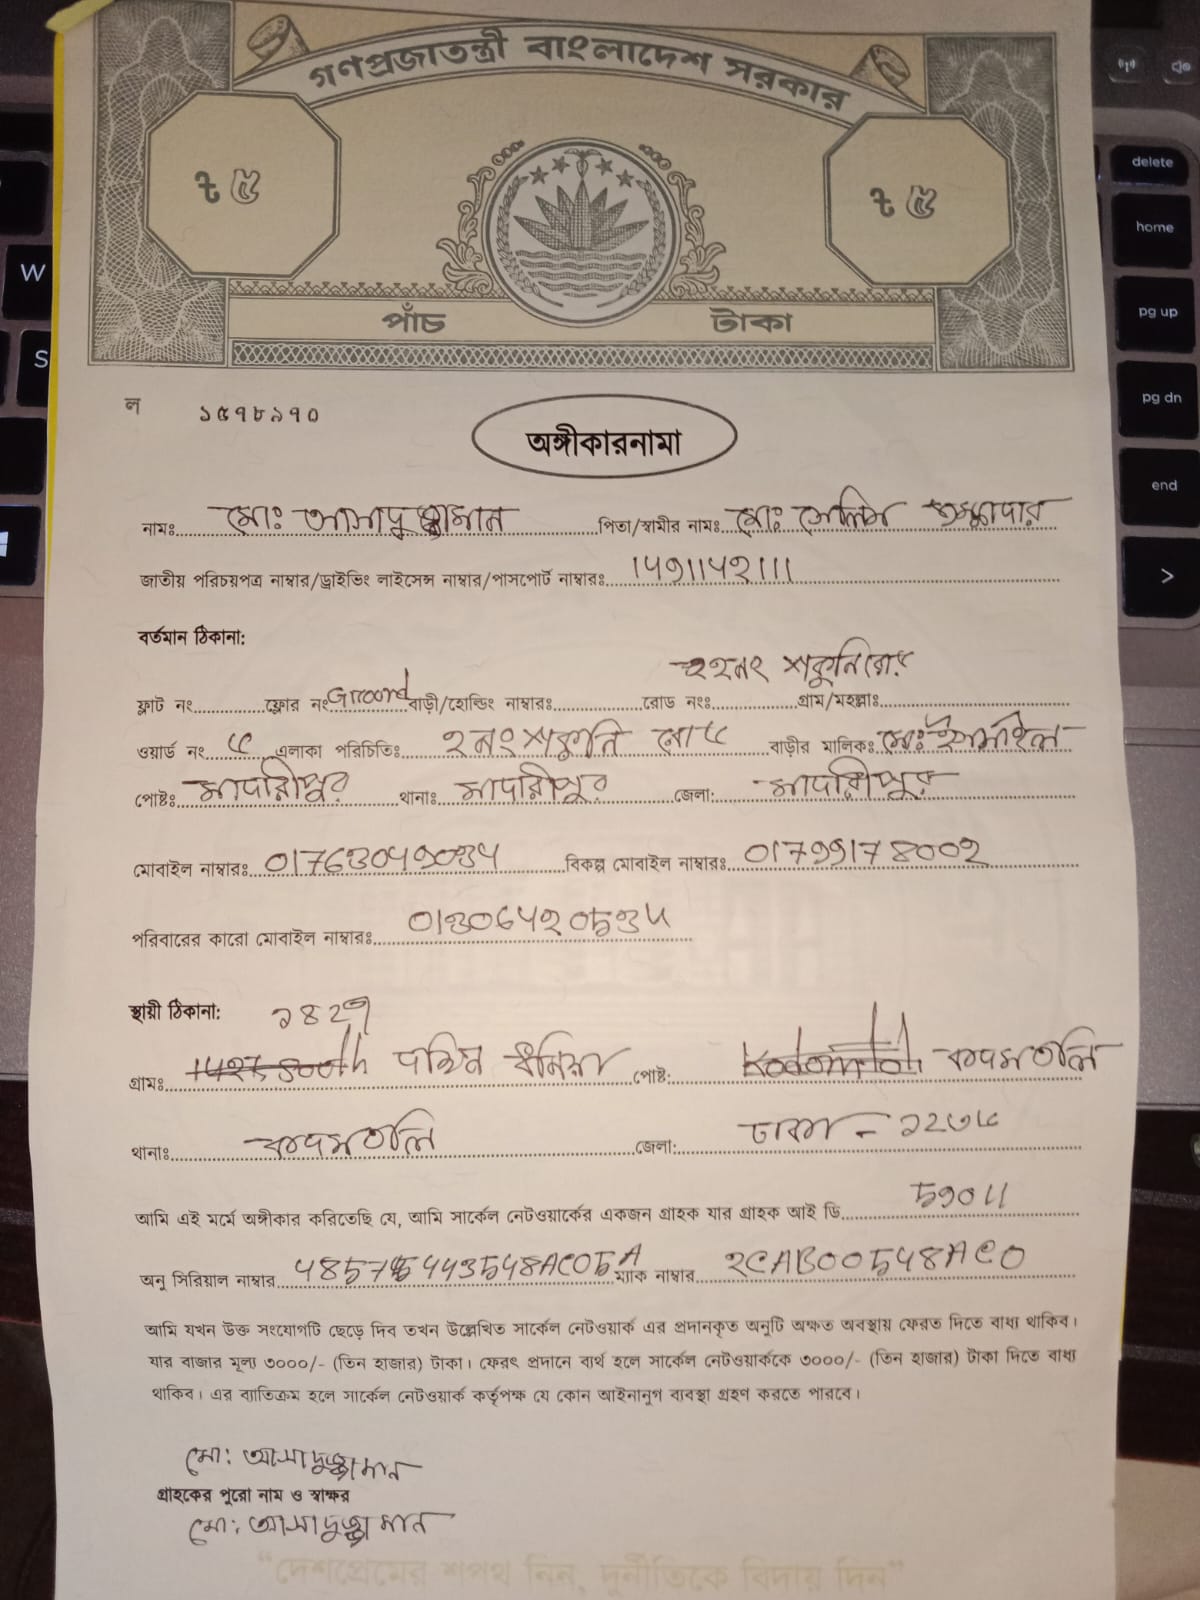 গণপ্রজাতন্ত্রী বাংলাদেশ সরকার
৳ ৫ ৳ ৫
পাঁচ টাকা
ল ১৫৭৮৯৭০
অঙ্গীকারনামা
নামঃ মোঃ আসাদুজ্জামান পিতা/স্বামীর নামঃ মোঃ সেলিম তালুকদার
জাতীয় পরিচয়পত্র নাম্বার/ড্রাইভিং লাইসেন্স নাম্বার/পাসপোর্ট নাম্বারঃ
বর্তমান ঠিকানা:
২২নং শকুনি রোড
ফ্লাট নং ফ্লোর নং Ground বাড়ী/হোল্ডিং নাম্বারঃ রোড নংঃ গ্রাম/মহল্লাঃ
ওয়ার্ড নং ৫ এলাকা পরিচিতিঃ ২নং শকুনি রোড বাড়ীর মালিকঃ মোঃ ইসমাইল
পোষ্টঃ মাদারীপুর থানাঃ মাদারীপুর জেলা: মাদারীপুর
মোবাইল নাম্বারঃ বিকল্প মোবাইল নাম্বারঃ
পরিবারের কারো মোবাইল নাম্বারঃ
স্থায়ী ঠিকানা:
গ্রামঃ ধনিয়া পোষ্ট: কদমতলি
থানাঃ কদমতলি জেলা: ঢাকা - ১২৩৬
আমি এই মর্মে অঙ্গীকার করিতেছি যে, আমি সার্কেল নেটওয়ার্কের একজন গ্রাহক যার গ্রাহক আই ডি
অনু সিরিয়াল নাম্বার ম্যাক নাম্বার
আমি যখন উক্ত সংযোগটি ছেড়ে দিব তখন উল্লেখিত সার্কেল নেটওয়ার্ক এর প্রদানকৃত অনুটি অক্ষত অবস্থায় ফেরত দিতে বাধ্য থাকিব।
যার বাজার মূল্য ৩০০০/- (তিন হাজার) টাকা। ফেরৎ প্রদানে ব্যর্থ হলে সার্কেল নেটওয়ার্ককে ৩০০০/- (তিন হাজার) টাকা দিতে বাধ্য
থাকিব। এর ব্যাতিক্রম হলে সার্কেল নেটওয়ার্ক কর্তৃপক্ষ যে কোন আইনানুগ ব্যবস্থা গ্রহণ করতে পারবে।
মো: আসাদুজ্জামান
গ্রাহকের পুরো নাম ও স্বাক্ষর
মো: আসাদুজ্জামান
“দেশপ্রেমের শপথ নিন, দুর্নীতিকে বিদায় দিন”